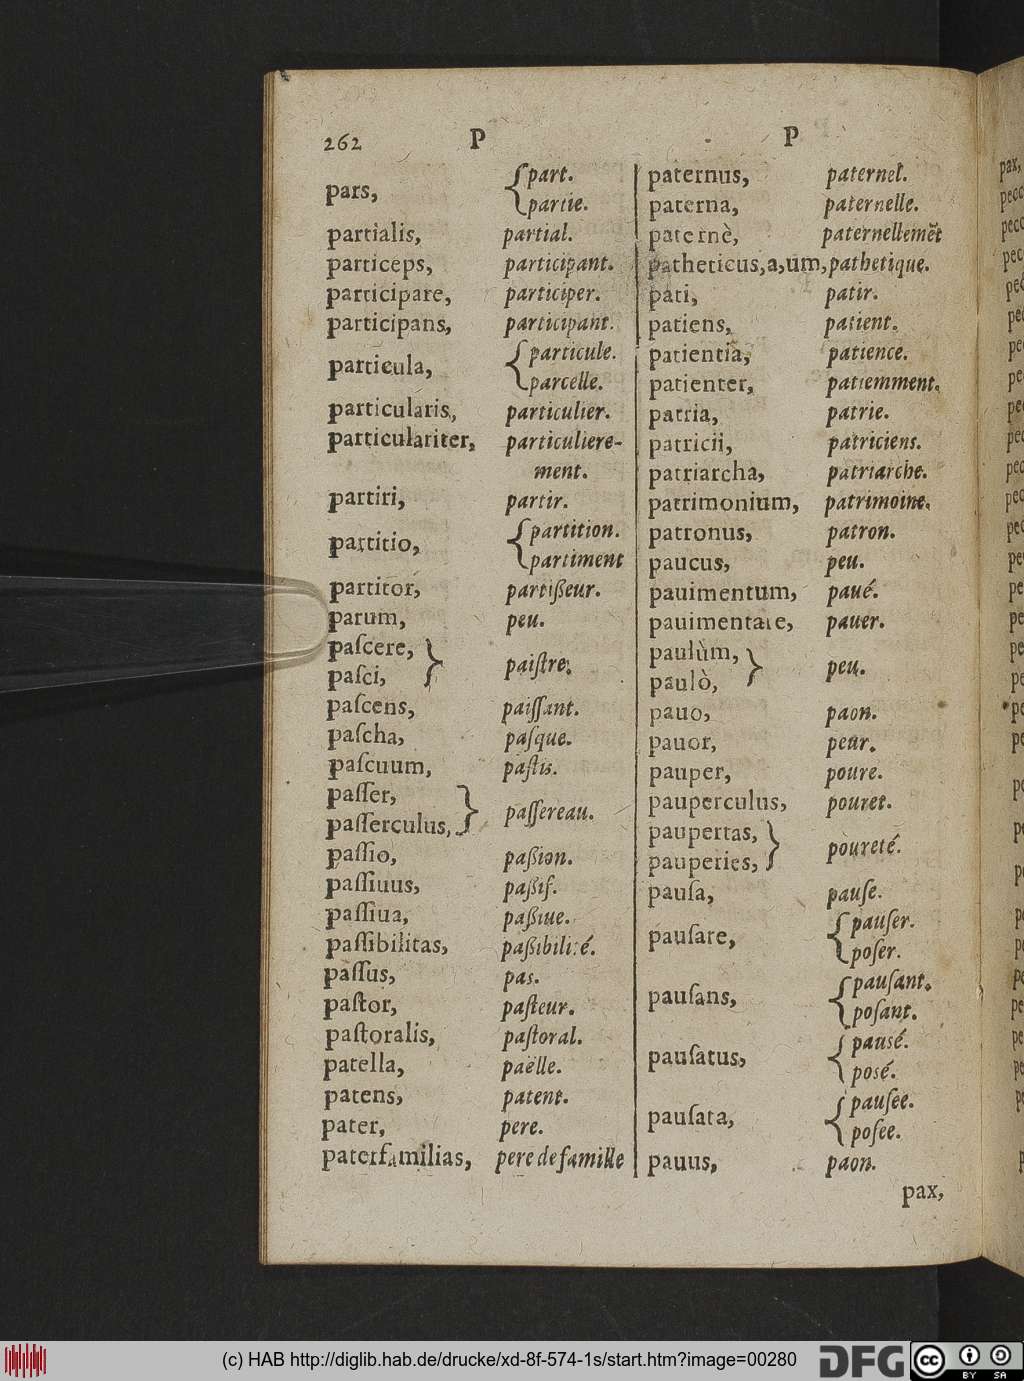 262 P P
pars, { part.
partie.
partialis, partial.
particeps, participant.
participare, participer.
participans, participant.
particula, { particule.
parcelle.
particularis, particulier.
particulariter, particuliere-
ment.
partiri, partir.
partitio, { partition.
partiment
partitor, partißeur.
parum, peu.
paſcere, } paiſtre.
paſci,
paſcens, paiſſant.
paſcha, paſque.
paſcuum, paſtis.
paſſer, } paſſereau.
paſſerculus,
paſſio, paßion.
paſſiuus, paßif.
paſſiua, paßiue.
paſſibilitas, paßibilité.
paſſus, pas.
paſtor, paſteur.
paſtoralis, paſtoral.
patella, paëlle.
patens, patent.
pater, pere.
paterfamilias, pere de famille
paternus, paternel.
paterna, paternelle.
paternè, paternellemẽt
patheticus,a,um, pathetique.
pati, patir.
patiens, patient.
patientia, patience.
patienter, patiemment.
patria, patrie.
patricii, patriciens.
patriarcha, patriarche.
patrimonium, patrimoine.
patronus, patron.
paucus, peu.
pauimentum, paué.
pauimentare, pauer.
paulùm, } peu.
paulò,
pauo, paon.
pauor, peur.
pauper, poure.
pauperculus, pouret.
paupertas, } poureté.
pauperies,
pauſa, pauſe.
pauſare, { pauſer.
poſer.
pauſans, { pauſant.
poſant.
pauſatus, { pausé.
posé.
pauſata, { pauſée.
poſee.
pauus, paon.
pax,
(c) HAB http://diglib.hab.de/drucke/xd-8f-574-1s/start.htm?image=00280 DFG cc BY SA